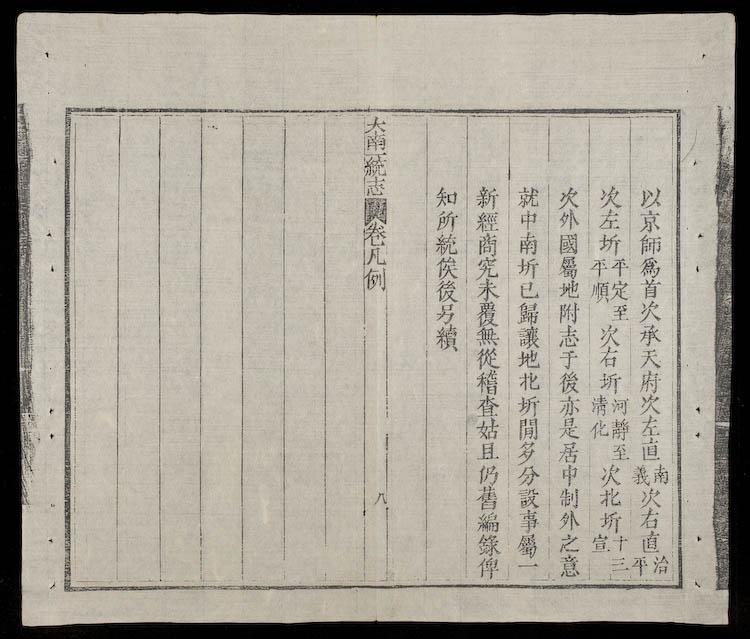 以京師爲首次承天府次左直南義次右直治平
次左圻平定至平順次右圻河靜至清化次北圻十三宣
次外國屬地附志于後亦是居中制外之意
就中南圻已歸讓地北圻間多分設事屬一
新經商究未覆無從稽查姑且仍舊編錄俾
知所統俟後另續
大南一統志 卷凡例
八